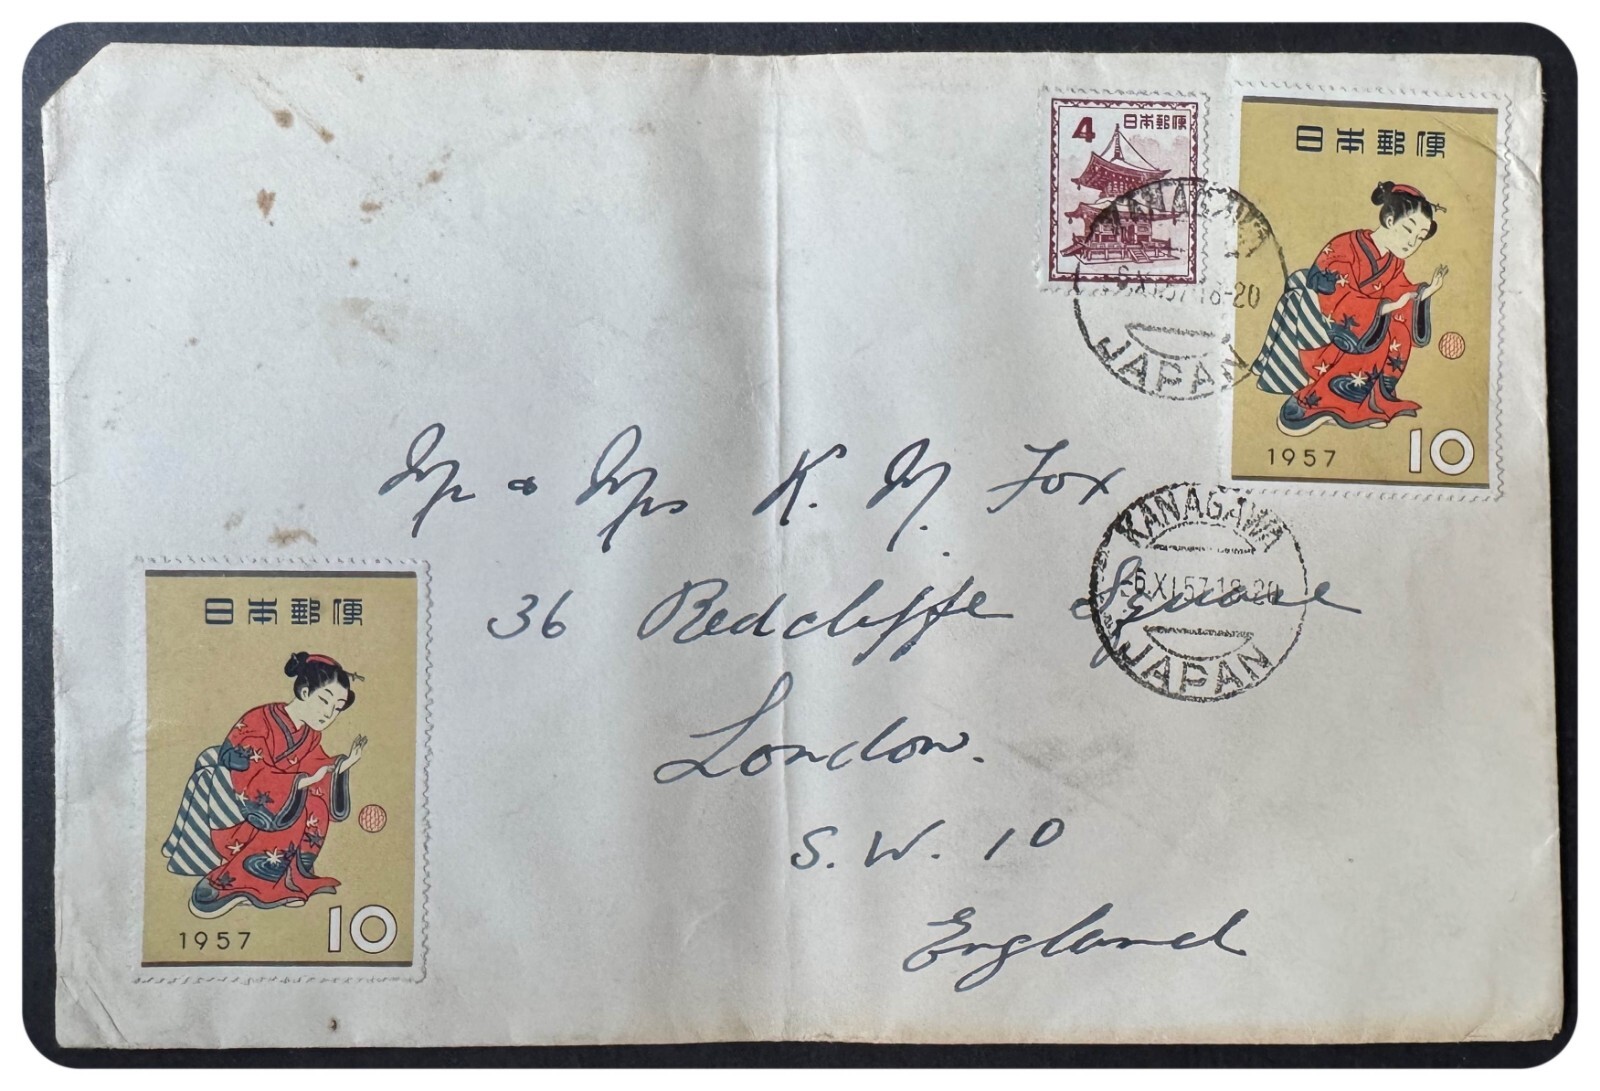 4 日本郵便
日本郵便
1957 10
KANAGAWA
6.XI.57.18-20
JAPAN
Mr & Mrs K. M. Fox
KANAGAWA
-6.XI.57.18-20
JAPAN
36 Redcliffe Square
London.
S. W. 10
England
日本郵便
1957 10